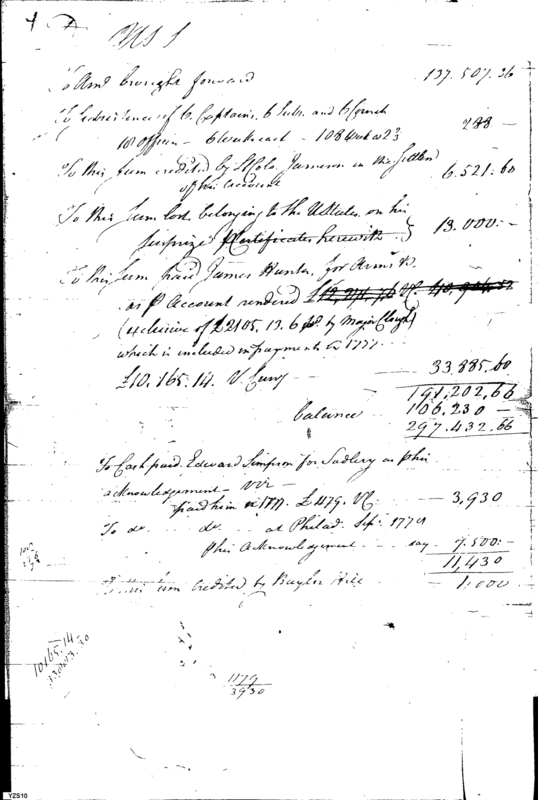 To Amt brought forward 137.507.36
To Subsistence of 6 Captains, 6 Subs. and 6 Cornets
18 officers - 6 Weeks each - 108 Weeks a 2⅔ 288 -
To this Sum credited by Lt Colo. Jameson in the Settlemt
of his Account 6.521.60
To this Sum lost belonging to the on his
Surprize (Certificates herewith) 13.000:-
To this Sum paid James Hunter for Arms &c.
as p Account rendered
(exclusive of £2105.13.6 pd. by Major Clough)
which is included in payments in 1777
£10.165.14. V. Curry 33.885.60
191,202,66
balance 106.230 -
297.432.66
To Cash paid Edward Simpson for Sadlery as p his
acknowledgement - viz -
paid him in 1777. £1179. VC. - 3,930
To do. do. at Philad. Sepr. 1778
p his Acknowledgement say 7.500:-
11,430
Sum Credited by Baylor Hill - 1.000
10165.14
1179
3930
YZS10